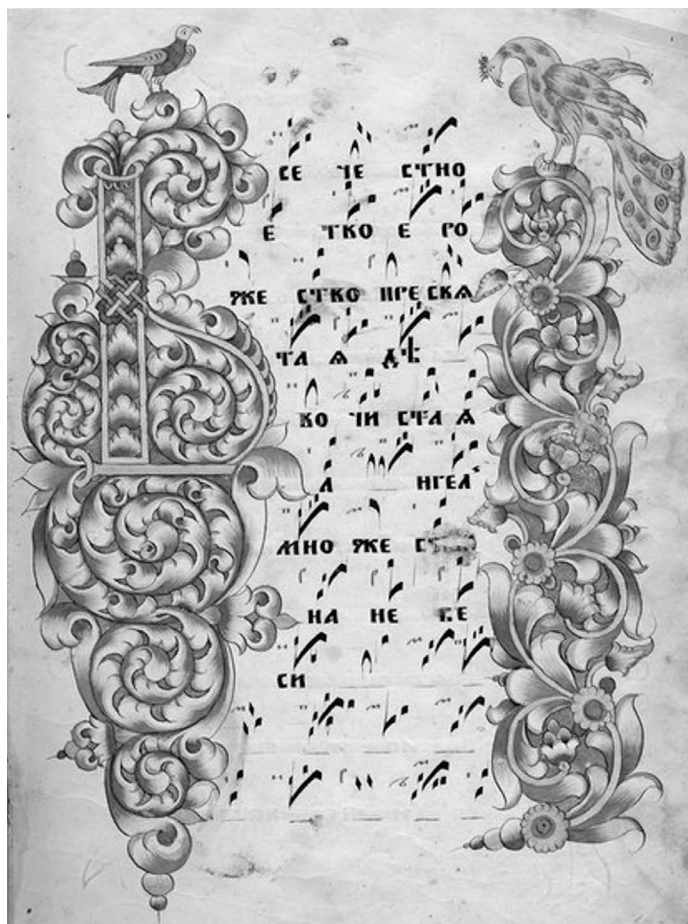 СЕ ЧЕ СТНО
Е ТКО Е РО
ЖЕ СТКО ПРЕ СКѦ
ТА Ѧ ДѢ
КО ЧИ СТА Ѧ
А НГЕЛ
МНО ЖЕ С
НА НЕ БЕ
СИ